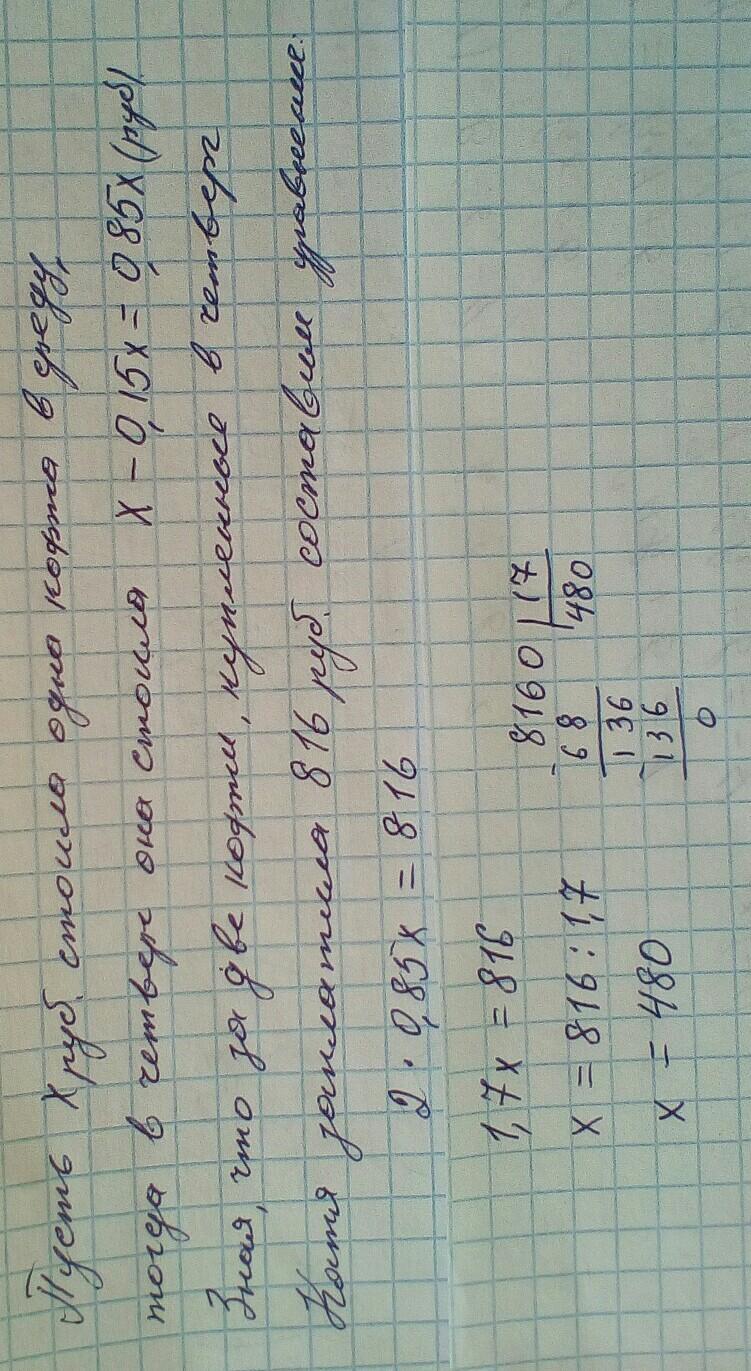 Пусть x руб. стоила одна кофта в среду,
тогда в четверг она стоила x - 0,15x = 0,85x (руб)
Зная, что за две кофты, купленные в четверг
Катя заплатила 816 руб. составим уравнение:
2 · 0,85x = 816
1,7x = 816
x = 816 : 1,7
x = 480
8160 | 17
- 68 | 480
136
- 136
0